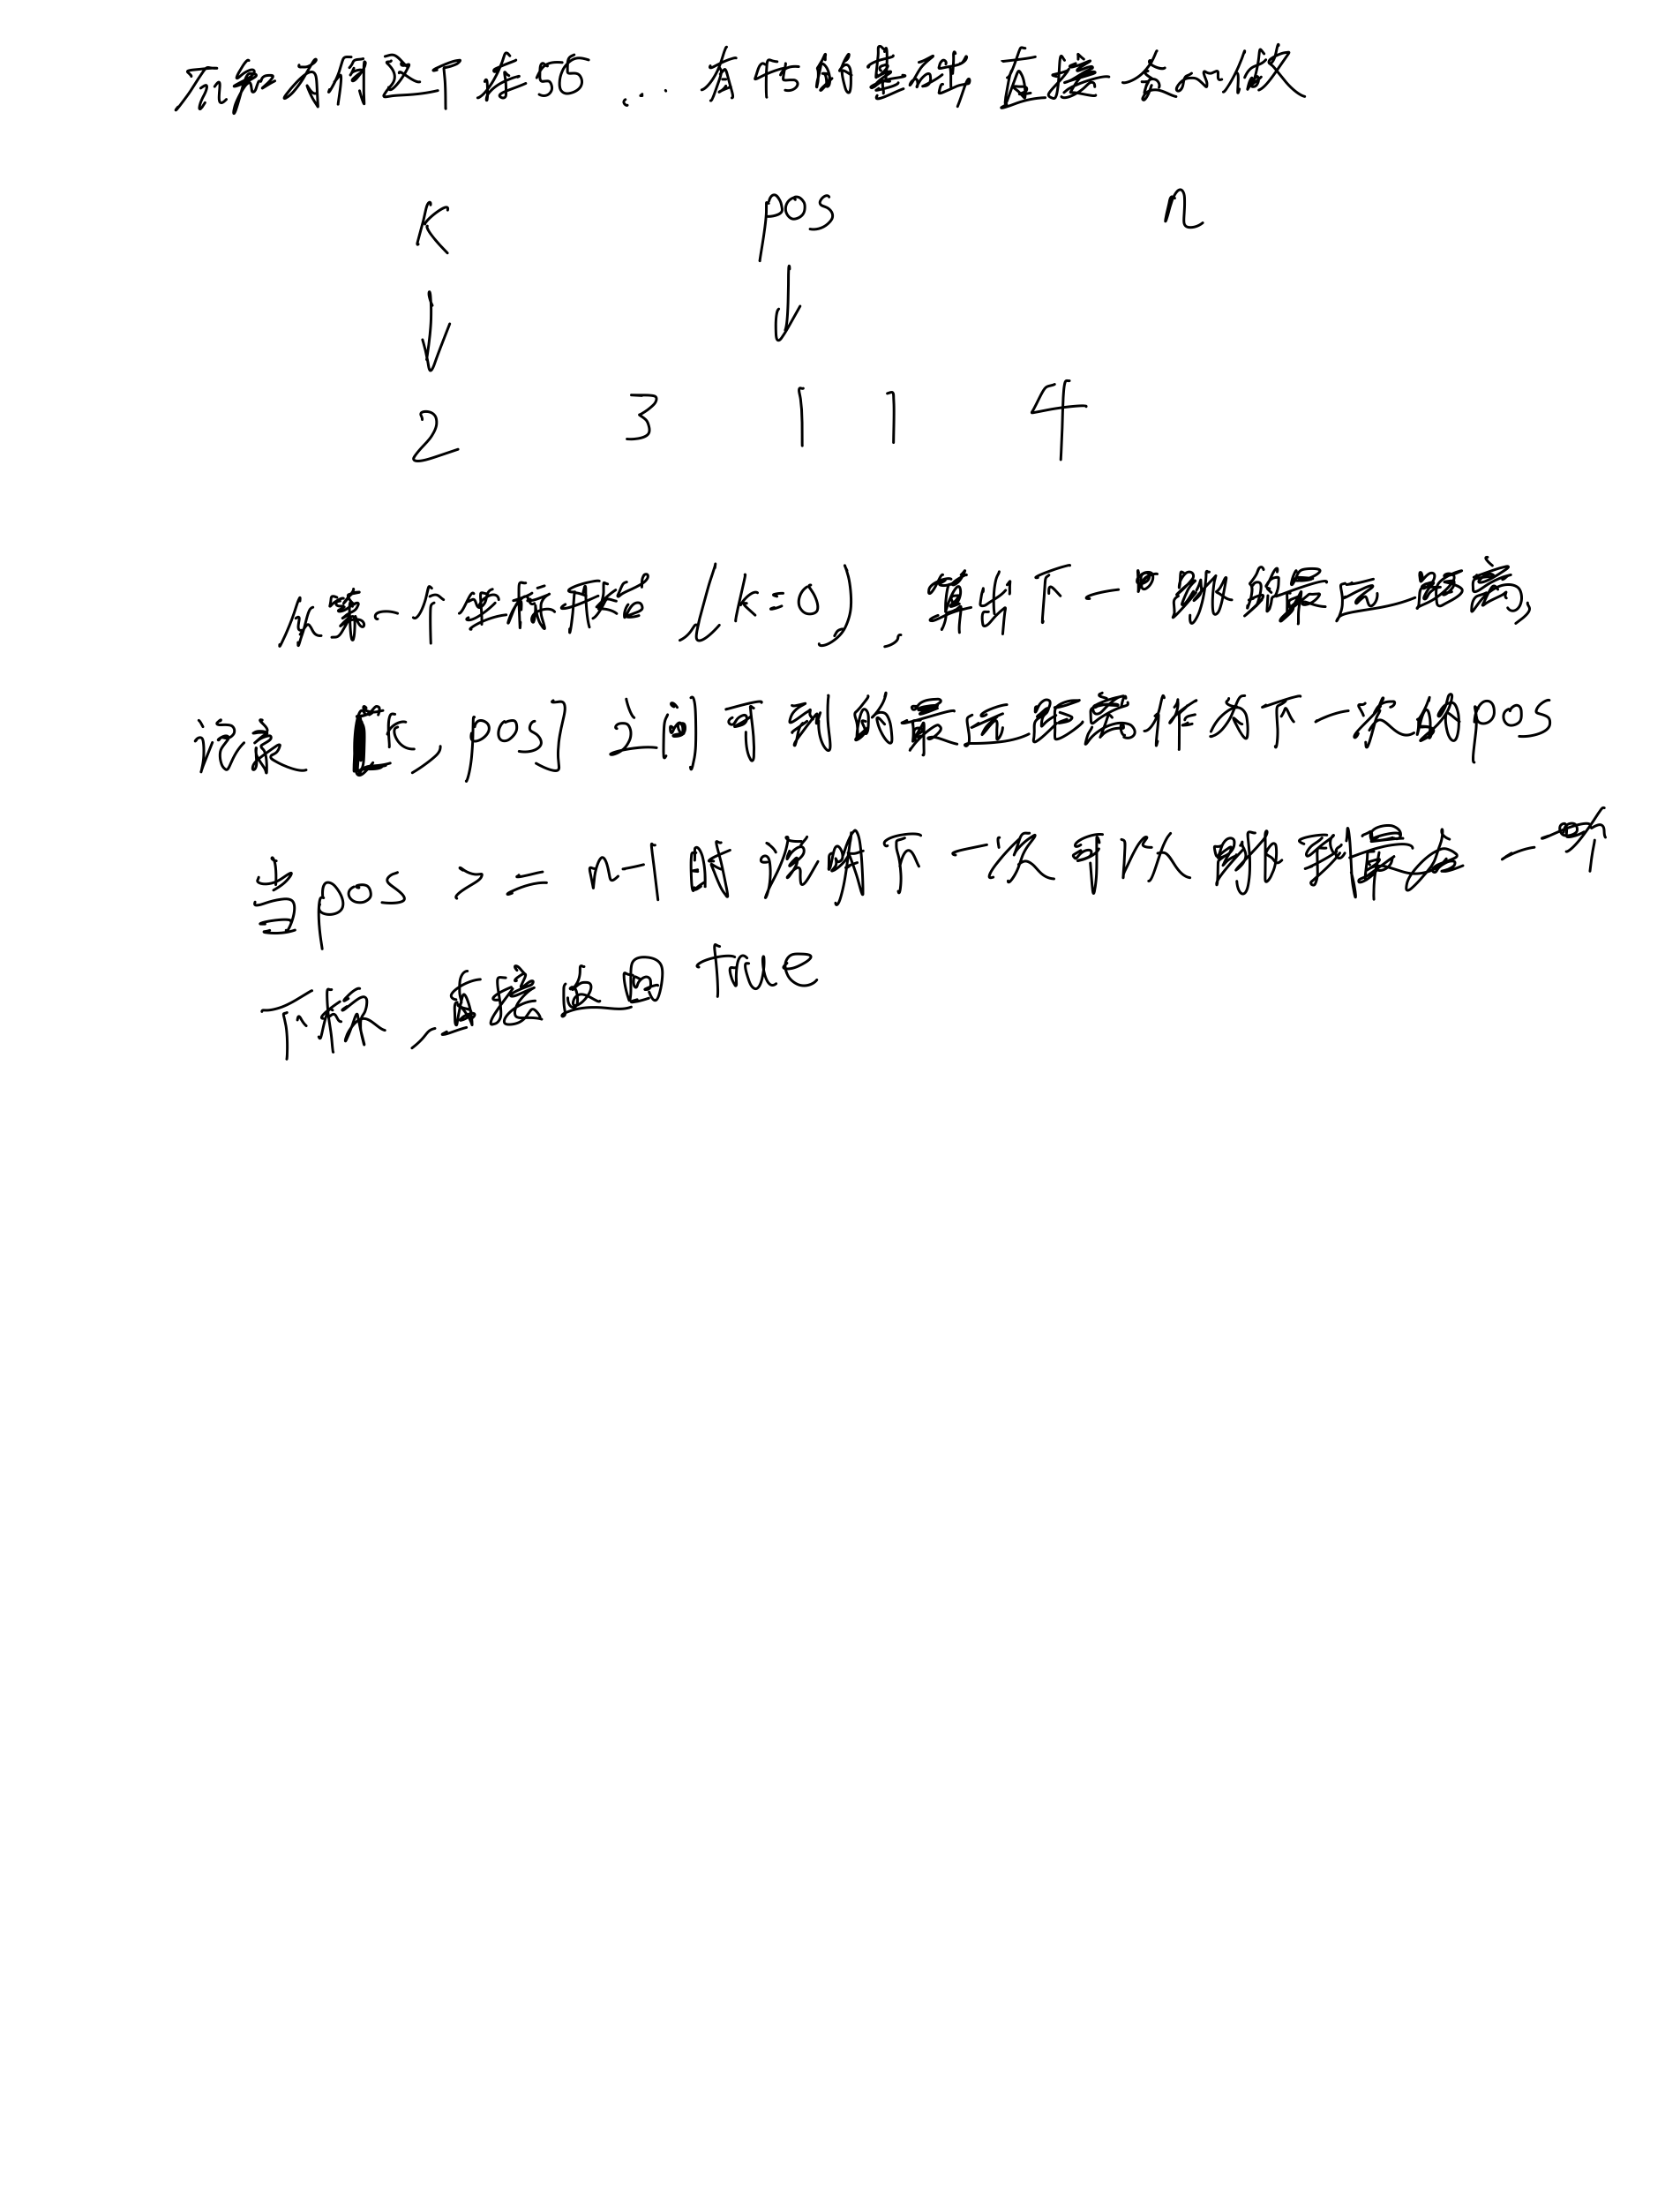 不知为何这个在55... 在45的基础直接会but做
K pos n
2 3 1 1 4
从第一个坐标开始 (k=0), 算出下一跳的最远距离,
记录 [k, pos] 之间可到的最远距离作为下一次的pos
当pos >= n-1时说明下一次可以跳到最后一个
下标,直接返回 true